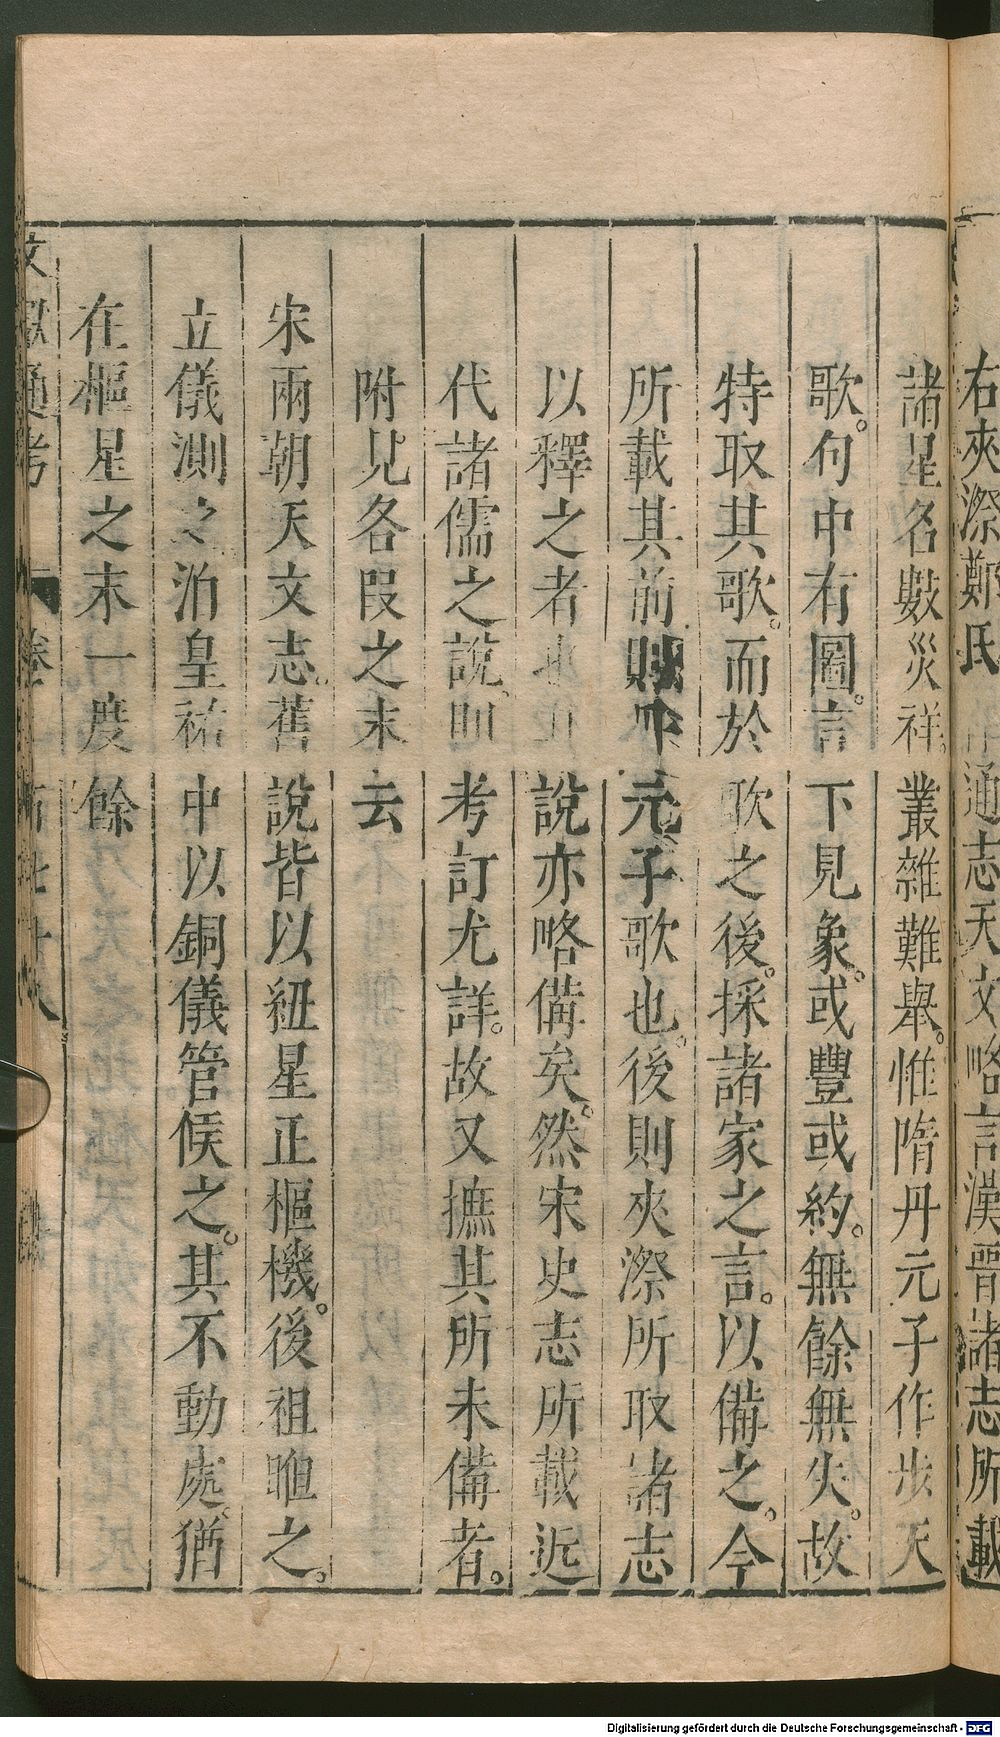 右夾漈鄭氏通志天文略言漢晉諸志所載
諸星名數災祥。叢雜難舉。惟隋丹元子作步天
歌。句中有圖。言下見象。或豐或約。無餘無失。故
特取其歌。而於歌之後。採諸家之言。以備之。今
所載其前則丹元子歌也。後則夾漈所取諸志
以釋之者也說亦略備矣。然宋史志所載近
代諸儒之說。則考訂尤詳。故又摭其所未備者。
附見各段之末云
宋兩朝天文志。舊說皆以紐星正樞機。後祖暅之。
立儀測之洎皇祐中以銅儀管候之。其不動處。猶
在樞星之末一度餘
文獻通考 卷
Digitalisierung gefördert durch die Deutsche Forschungsgemeinschaft - DFG